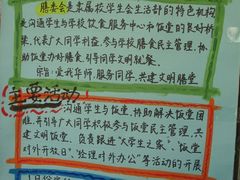 膳委会是隶属校学生会生活部的特色机构
是沟通学生与学校饮食服务中心和饭堂的良好桥
梁,代表广大同学利益,参与学校膳食民主管理,协
助饭堂办好膳食,倡导同学文明就餐。
宗旨:爱我华师,服务同学,共建文明膳堂
主要活动
沟通学生与饭堂,协助解决饭堂困
难,并引导广大同学积极参与饭堂民主管理,共
建文明饭堂,负责跟进"大学生之家"、饭堂
对外开放日"、"经理对外办公"等活动的开展